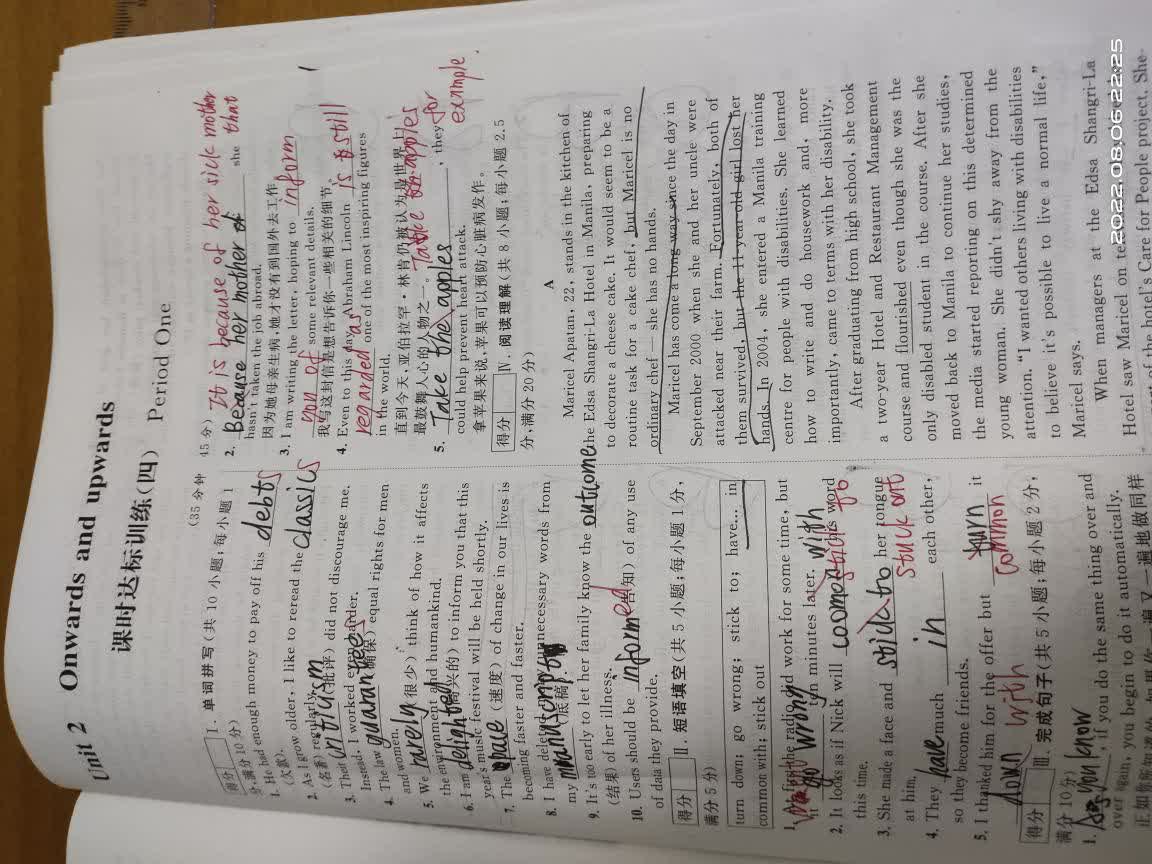 Unit 2 Onwards and upwards
课时达标训练(四) Period One
(35分钟 45分)
得分
Ⅰ. 单词拼写(共10小题;每小题1
分,满分10分)
1. He had enough money to pay off his debts
(欠款).
2. As I grow older, I like to reread the classics
(名著) regularly.
3. Their criticism (批评) did not discourage me.
Instead, I worked even harder.
4. The law guarantees (确保) equal rights for men
and women.
5. We rarely (很少) think of how it affects
the environment and humankind.
6. I am delighted (高兴的) to inform you that this
year's music festival will be held shortly.
7. The pace (速度) of change in our lives is
becoming faster and faster.
8. I have deleted unnecessary words from
my manuscript (底稿).
9. It's too early to let her family know the outcome
(结果) of her illness.
10. Users should be informed (告知) of any use
of data they provide.
得分
Ⅱ. 短语填空(共5小题;每小题1分,
满分5分)
turn down; go wrong; stick to; have... in
common with; stick out
1. At first the radio did work for some time, but
it go wrong ten minutes later. with
2. It looks as if Nick will common stick to his word
this time.
3. She made a face and stick to her tongue
stuck out
at him.
4. They have much in each other,
so they become friends. common
5. I thanked him for the offer but turn it
down with
得分
Ⅲ. 完成句子(共5小题;每小题2分,
满分10分)
1. As you know, if you do the same thing over and
over again, you begin to do it automatically.
正如你所知道的,如果你一遍又一遍地做同样
It is because of her sick mother
that
2. Because her mother of she
hasn't taken the job abroad.
因为她母亲生病,她才没有到国外去工作
3. I am writing the letter, hoping to inform
you of some relevant details.
我写这封信是想告诉你一些相关的细节。
4. Even to this day, Abraham Lincoln is still
regarded as one of the most inspiring figures
in the world.
直到今天,亚伯拉罕·林肯仍被认为是世界上
最鼓舞人心的人物之一。
Take apples for example.
5. Take the apples, they
could help prevent heart attack.
拿苹果来说,苹果可以预防心脏病发作。
得分
Ⅳ. 阅读理解(共8小题;每小题2.5
分,满分20分)
A
Maricel Apatan, 22, stands in the kitchen of
the Edsa Shangri-La Hotel in Manila, preparing
to decorate a cheese cake. It would seem to be a
routine task for a cake chef, but Maricel is no
ordinary chef — she has no hands.
Maricel has come a long way since the day in
September 2000 when she and her uncle were
attacked near their farm. Fortunately, both of
them survived, but the 11-year-old girl lost her
hands. In 2004, she entered a Manila training
centre for people with disabilities. She learned
how to write and do housework and, more
importantly, came to terms with her disability.
After graduating from high school, she took
a two-year Hotel and Restaurant Management
course and flourished even though she was the
only disabled student in the course. After she
moved back to Manila to continue her studies,
the media started reporting on this determined
young woman. She didn't shy away from the
attention. "I wanted others living with disabilities
to believe it's possible to live a normal life,"
Maricel says.
When managers at the Edsa Shangri-La
Hotel saw Maricel on
part of the hotel's Care for People project. She
2022.08.06 22:25